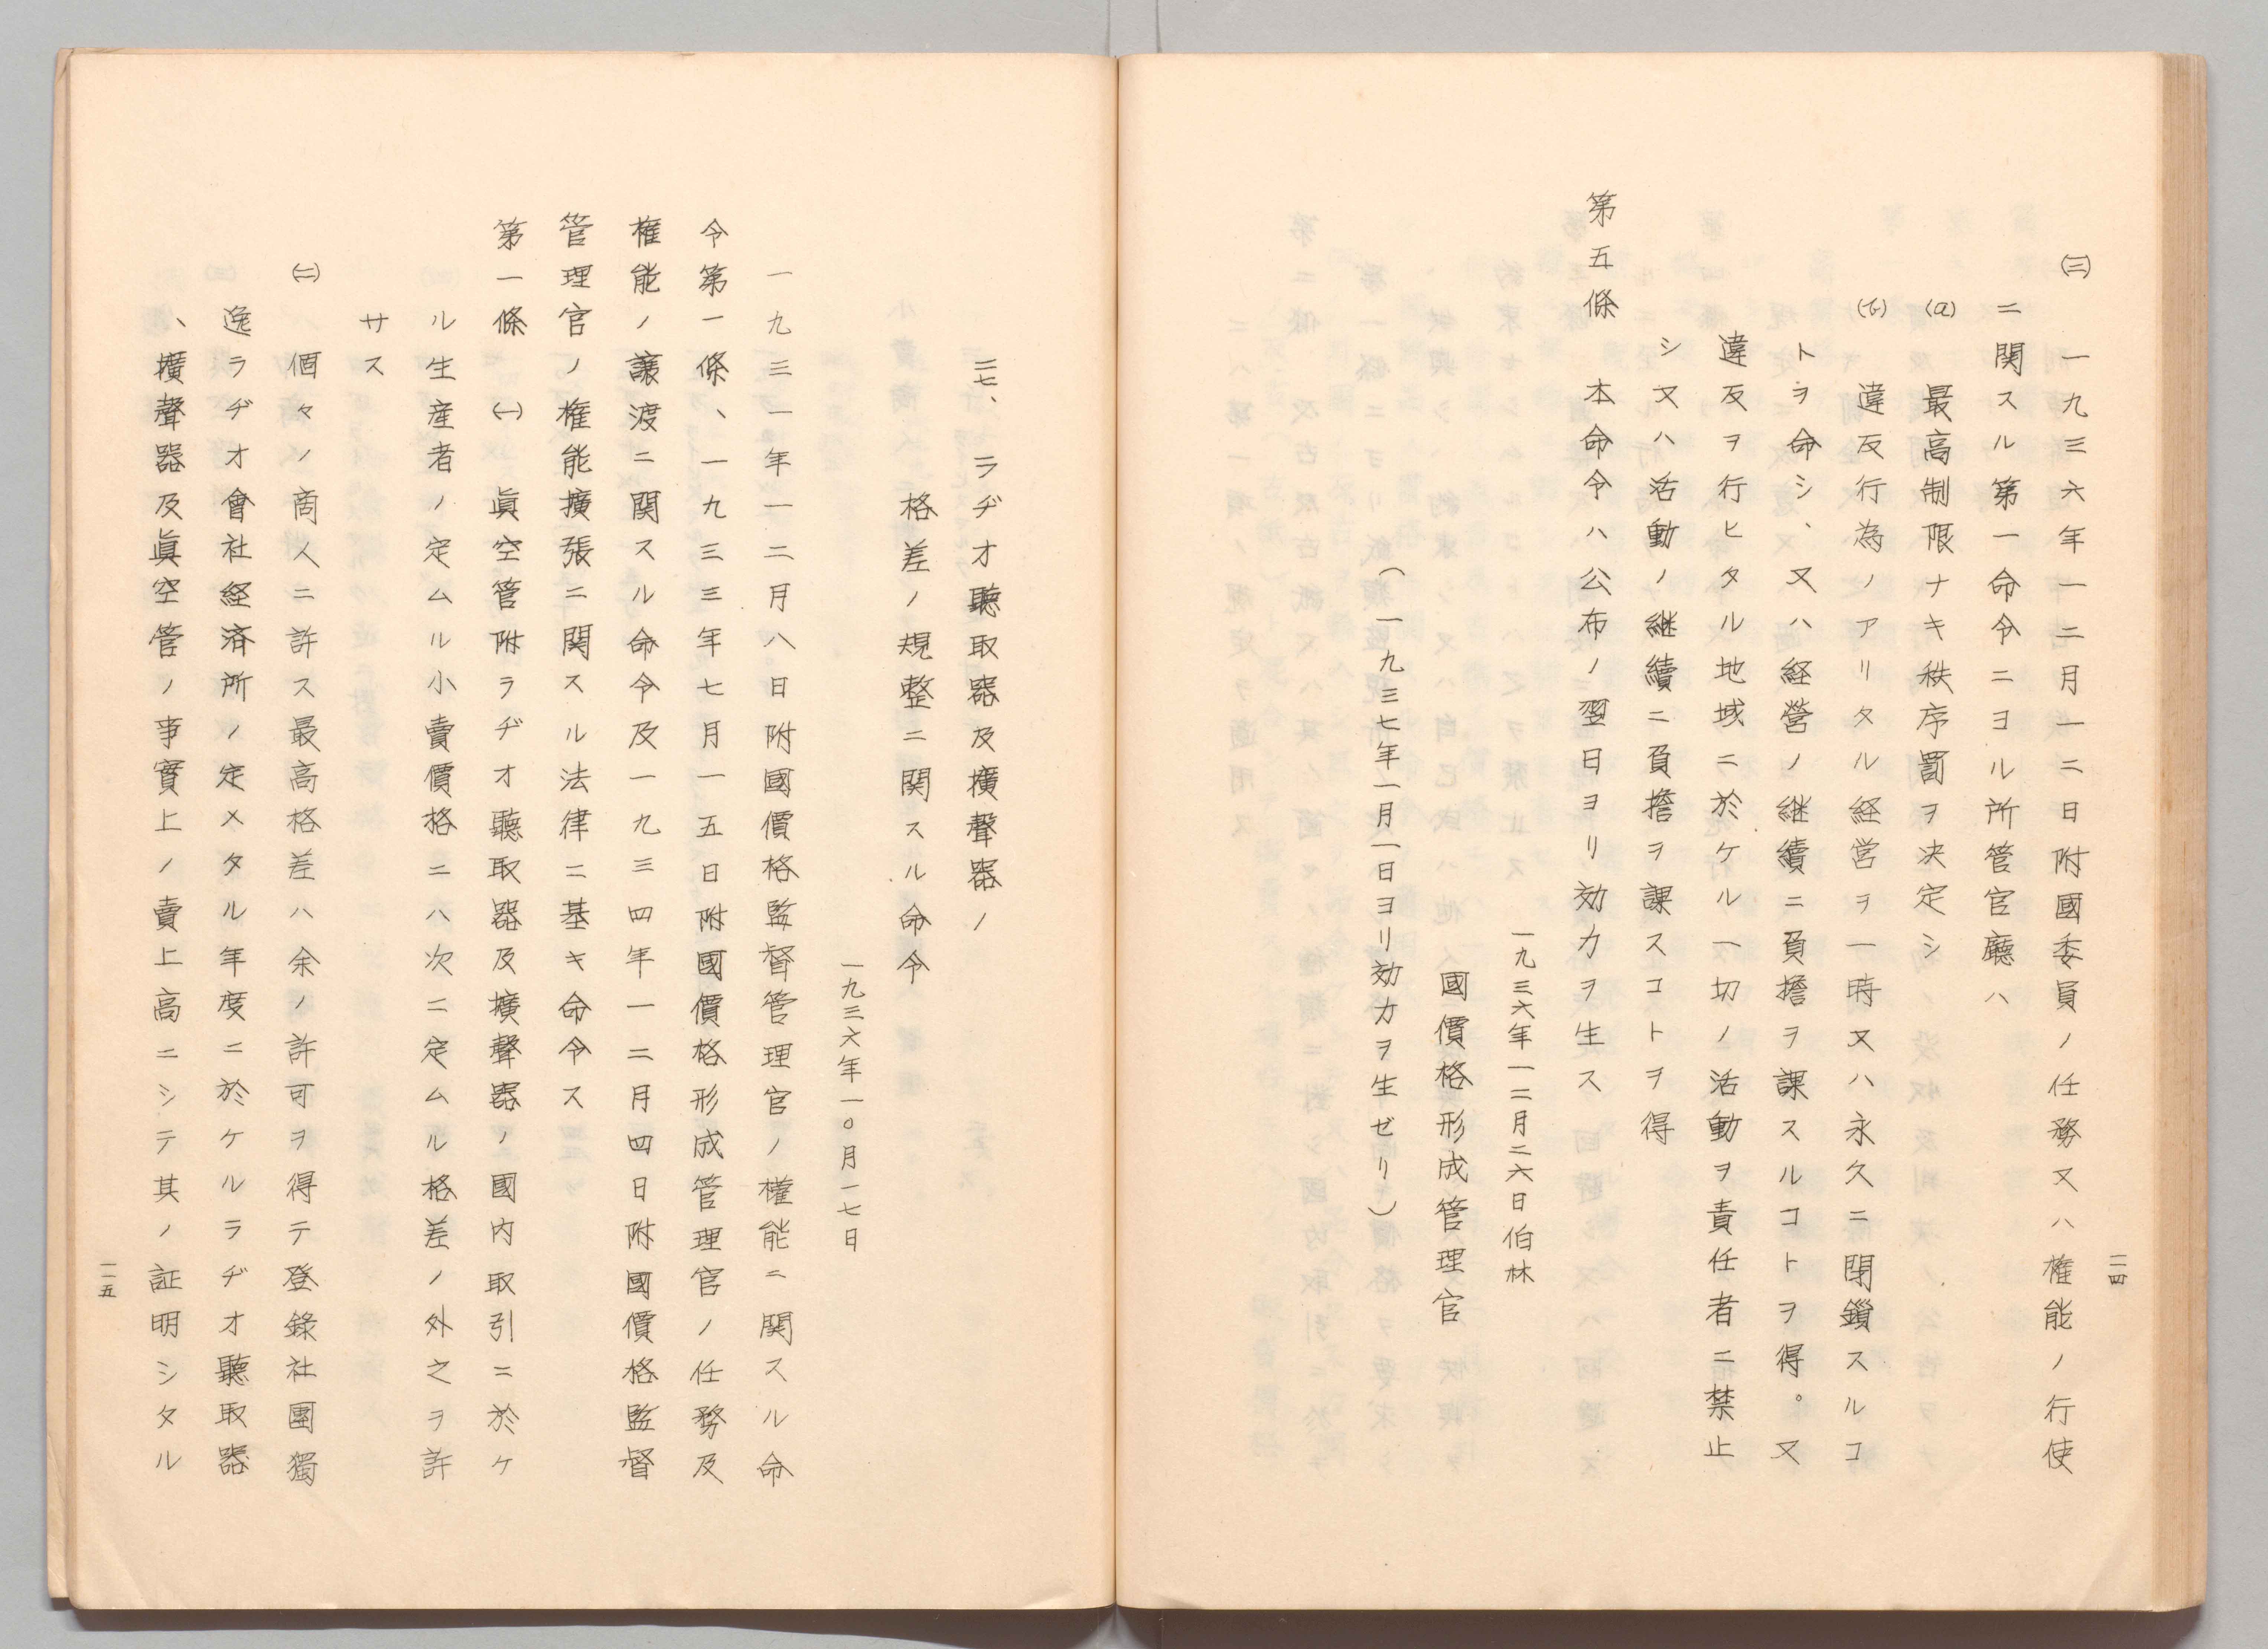 一一四
㈢　一九三六年一二月一二日附國委員ノ任務又ハ権能ノ行使
ニ関スル第一命令ニヨル所管官廳ハ
(a)　最高制限ナキ秩序罰ヲ決定シ
(b)　違反行為ノアリタル経営ヲ一時又ハ永久ニ閉鎖スルコ
トヲ命シ、又ハ経營ノ継續ニ負擔ヲ課スルコトヲ得。又
違反ヲ行ヒタル地域ニ於ケル一切ノ活動ヲ責任者ニ禁止
シ又ハ活動ノ継續ニ負擔ヲ課スコトヲ得
第五條　本命令ハ公布ノ翌日ヨリ効力ヲ生ス
一九三六年一二月二六日伯林
國價格形成管理官
（一九三七年一月一日ヨリ効力ヲ生ゼリ）
二七、ラヂオ聽取器及擴聲器ノ
格差ノ規整ニ関スル命令
一九三六年一〇月一七日
一九三一年一二月八日附國價格監督管理官ノ権能ニ関スル命
令第一條、一九三三年七月一五日附國價格形成管理官ノ任務及
権能ノ譲渡ニ関スル命令及一九三四年一二月四日附國價格監督
管理官ノ権能擴張ニ関スル法律ニ基キ命令ス
第一條　㈠　眞空管附ラヂオ聽取器及擴聲器ノ國内取引ニ於ケ
ル生産者ノ定ムル小賣價格ニハ次ニ定ムル格差ノ外之ヲ許
サス
㈡　個々ノ商人ニ許ス最高格差ハ余ノ許可ヲ得テ登錄社團獨
逸ラヂオ會社経済所ノ定メタル年度ニ於ケルラヂオ聽取器
、擴聲器及眞空管ノ事實上ノ賣上高ニシテ其ノ証明シタル
一一五